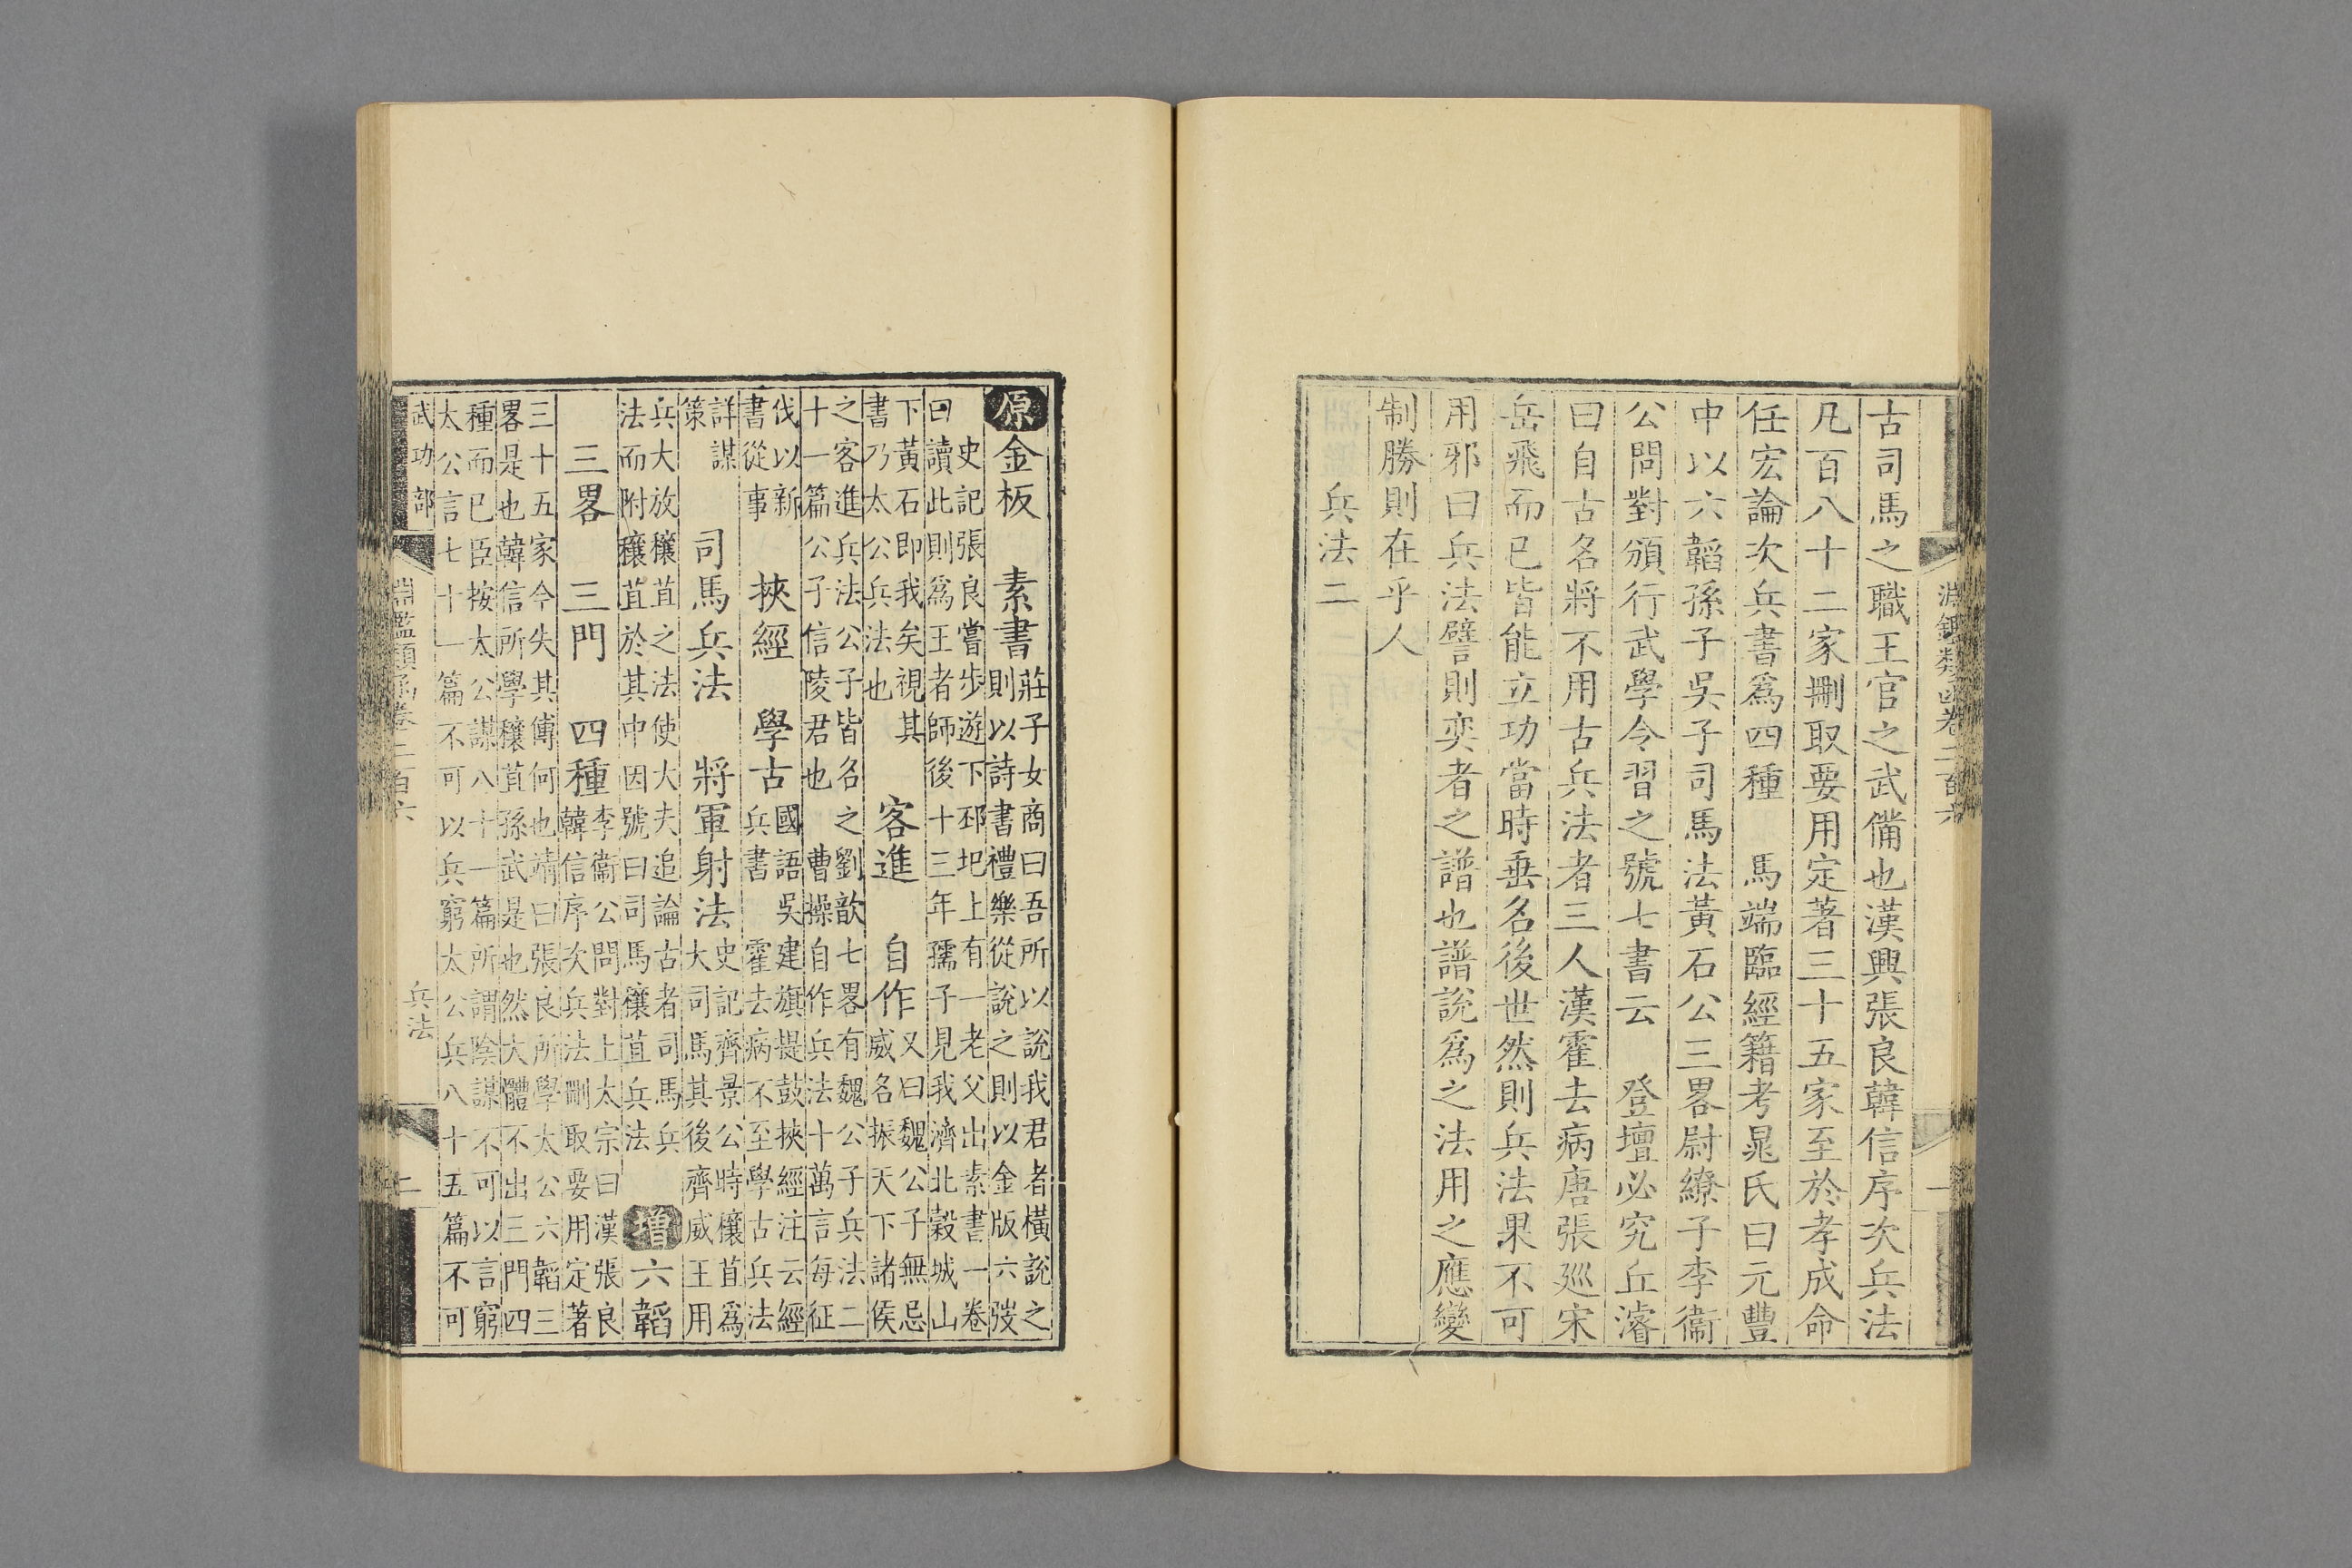 淵鑑類函卷二百六
一
古司馬之職王官之武備也漢興張良韓信序次兵法
凡百八十二家刪取要用定著三十五家至於孝成命
任宏論次兵書爲四種　馬端臨經籍考晁氏曰元豐
中以六韜孫子吳子司馬法黃石公三畧尉繚子李衞
公問對頒行武學令習之號七書云　登壇必究丘濬
曰自古名將不用古兵法者三人漢霍去病唐張廵宋
岳飛而已皆能立功當時垂名後世然則兵法果不可
用邪曰兵法譬則奕者之譜也譜說爲之法用之應變
制勝則在乎人
兵法二
原金板　素書莊子女商曰吾所以說我君者橫說之
則以詩書禮樂從說之則以金版六弢
史記張良嘗步遊下邳圯上有一老父出素書一卷
曰讀此則爲王者師後十三年孺子見我濟北穀城山
下黃石即我矣視其
書乃太公兵法也　客進　自作又曰魏公子無忌
威名振天下諸侯
之客進兵法公子皆名之劉歆七畧有魏公子兵法二
十一篇公子信陵君也　曹操自作兵法十萬言每征
伐以新
書從事　挾經　學古國語吳建旗提鼓挾經注云經
兵書　霍去病不至學古兵法
詳謀
策　司馬兵法　將軍射法史記齊景公時穰苴爲
大司馬其後齊威王用
兵大放穰苴之法使大夫追論古者司馬兵
法而附穰苴於其中因號曰司馬穰苴兵法　增六韜
三畧　三門　四種李衞公問對上太宗曰漢張良
韓信序次兵法刪取要用定著
三十五家今失其傳何也靖曰張良所學太公六韜三
畧是也韓信所學穰苴孫武是也然大體不出三門四
種而已臣按太公謀八十一篇所謂陰謀不可以言窮
太公言七十一篇不可以兵窮太公兵八十五篇不可
武功部
淵鑑類函卷二百六
兵法
二